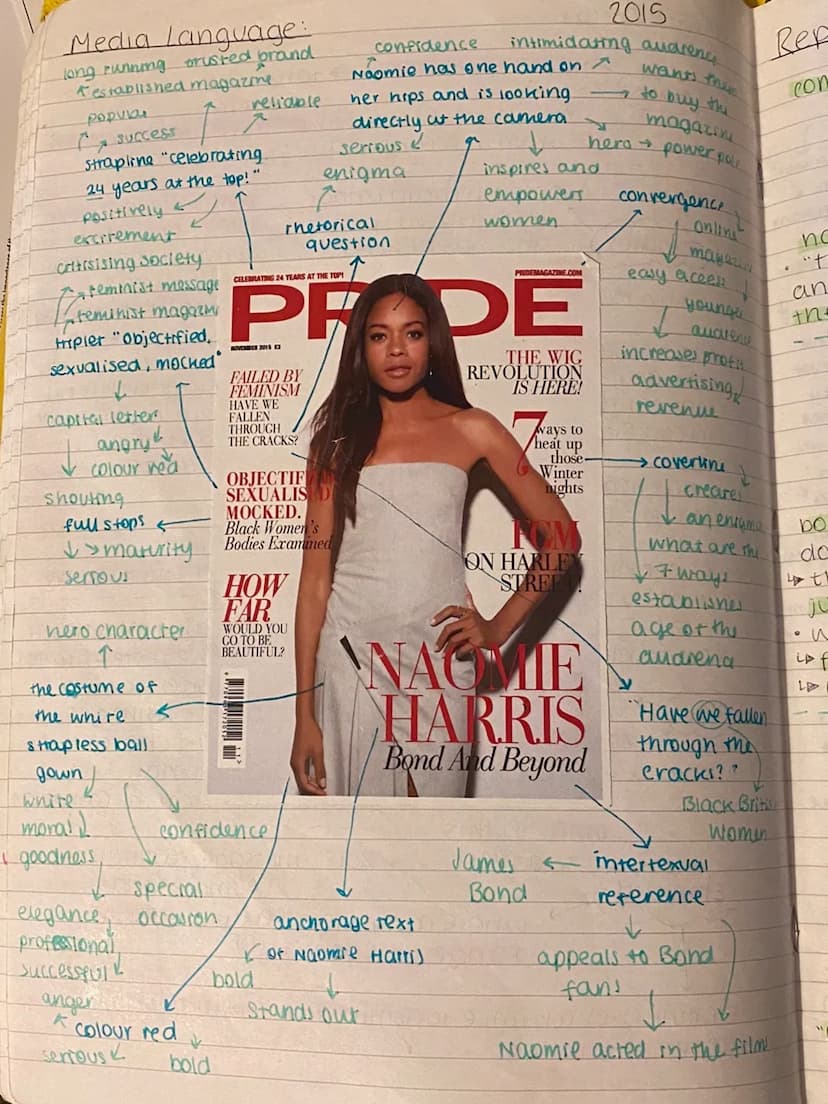 Media Language:
2015
long running trusted brand
established magazine
popular
success
reliable
strapline "celebrating
24 years at the top!"
positively
excitement
confidence intimidating audience
Naomie has one hand on
her hips and is looking
directly at the camera
wants them
to buy the
magazine
hero → power pose
serious
enigma
inspires and
empowers
women
rhetorical
question
convergence
online
easy access
increases profit
advertising
revenue
critisising society
feminist message
feminist magazine
tripler "objectified,
sexualised, mocked"
capital letter
angry
colour red
shouting
full stops
maturity
serious
CELEBRATING 24 YEARS AT THE TOP!
PRIDEMAGAZINE.COM
PRIDE
NOVEMBER 2015 £3
FAILED BY
FEMINISM
HAVE WE
FALLEN
THROUGH
THE CRACKS?
OBJECTIFIED
SEXUALISED
MOCKED.
Black Women's
Bodies Examined
HOW
FAR
WOULD YOU
GO TO BE
BEAUTIFUL?
THE WIG
REVOLUTION
IS HERE!
7 ways to
heat up
those
Winter
nights
FGM
ON HARLEY
STREET!
NAOMIE
HARRIS
Bond And Beyond
coverline
create
an enigma
what are the
7 ways
establishes
age of the
audrena
"Have we fallen
through the
cracks?"
Black British
Women
hero character
the costume of
the white
strapless ball
gown
white
moral
goodness
confidence
special
occasion
elegance
professional
successful
anger
colour red
serious
bold
anchorage text
of Naomie Harris
bold
stands out
James
Bond
intertexual
reference
appeals to Bond
fans
Naomie acted in the film